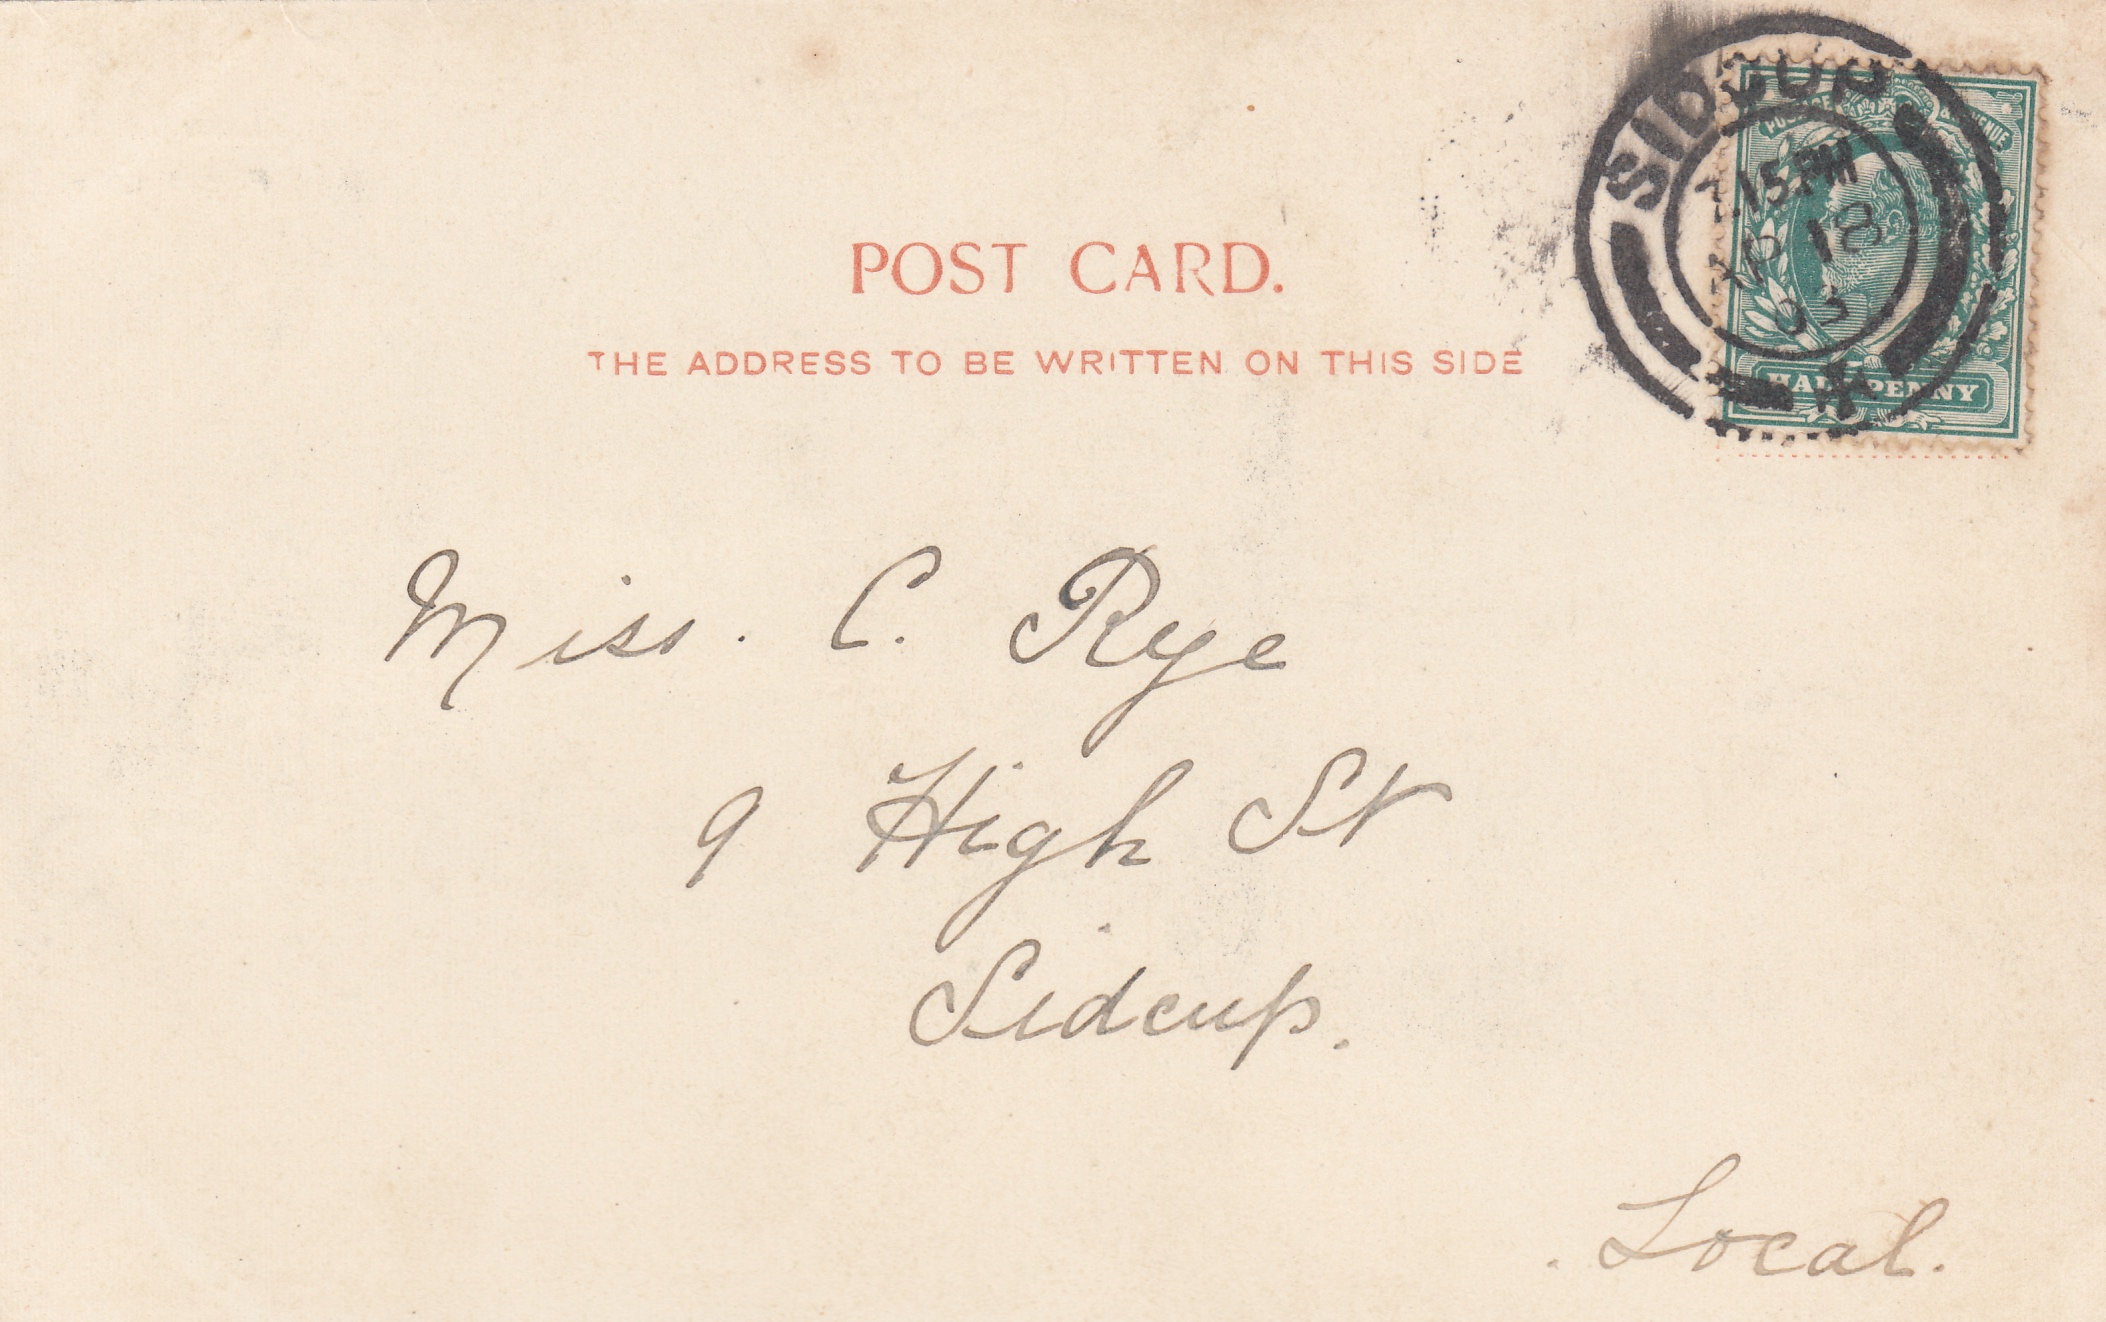 SIDCUP
7.15 PM
AP 18
03
POSTAGE & REVENUE
HALFPENNY
POST CARD.
THE ADDRESS TO BE WRITTEN ON THIS SIDE
Miss. C. Rye
9 High St
Sidcup.
Local.